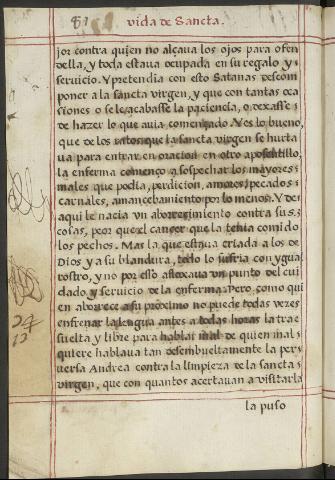 81
vida de Sancta.
jor contra quien no alçava los ojos para ofen
della, y toda estava ocupada en su regalo y
servicio. Y pretendia con esto Satanas descom
poner a la sancta virgen, y que con tantas oca
siones o se le acabasse la paciencia, o dexasse
de hazer lo que avia començado. Y es lo bueno,
que de los ratos que la sancta virgen se hurta
va para entrar en oracion en otro aposentillo,
la enferma començo a sospechar los mayores
males que podia, perdicion, amores, pecados
carnales, amancebamiento por lo menos. Y de
aqui le nacia un aborrecimiento contra su s.
cosas, peor que el cancer que la tenia comido
los pechos. Mas la que estava criada a los de
Dios y a su blandura, todo lo sufria con ygual
rostro, y no por esso afloxava un punto del cui
dado y servicio de la enferma. Pero como qui
en aborrece a su proximo no puede todas vezes
enfrenar la lengua antes a todas horas la trae
suelta y libre para hablar mal de quien mal
quiere hablava tan desembueltamente la per
versa Andrea contra la limpieza de la sancta
virgen, que con quantos acertavan a visitarla
la puso
24
12